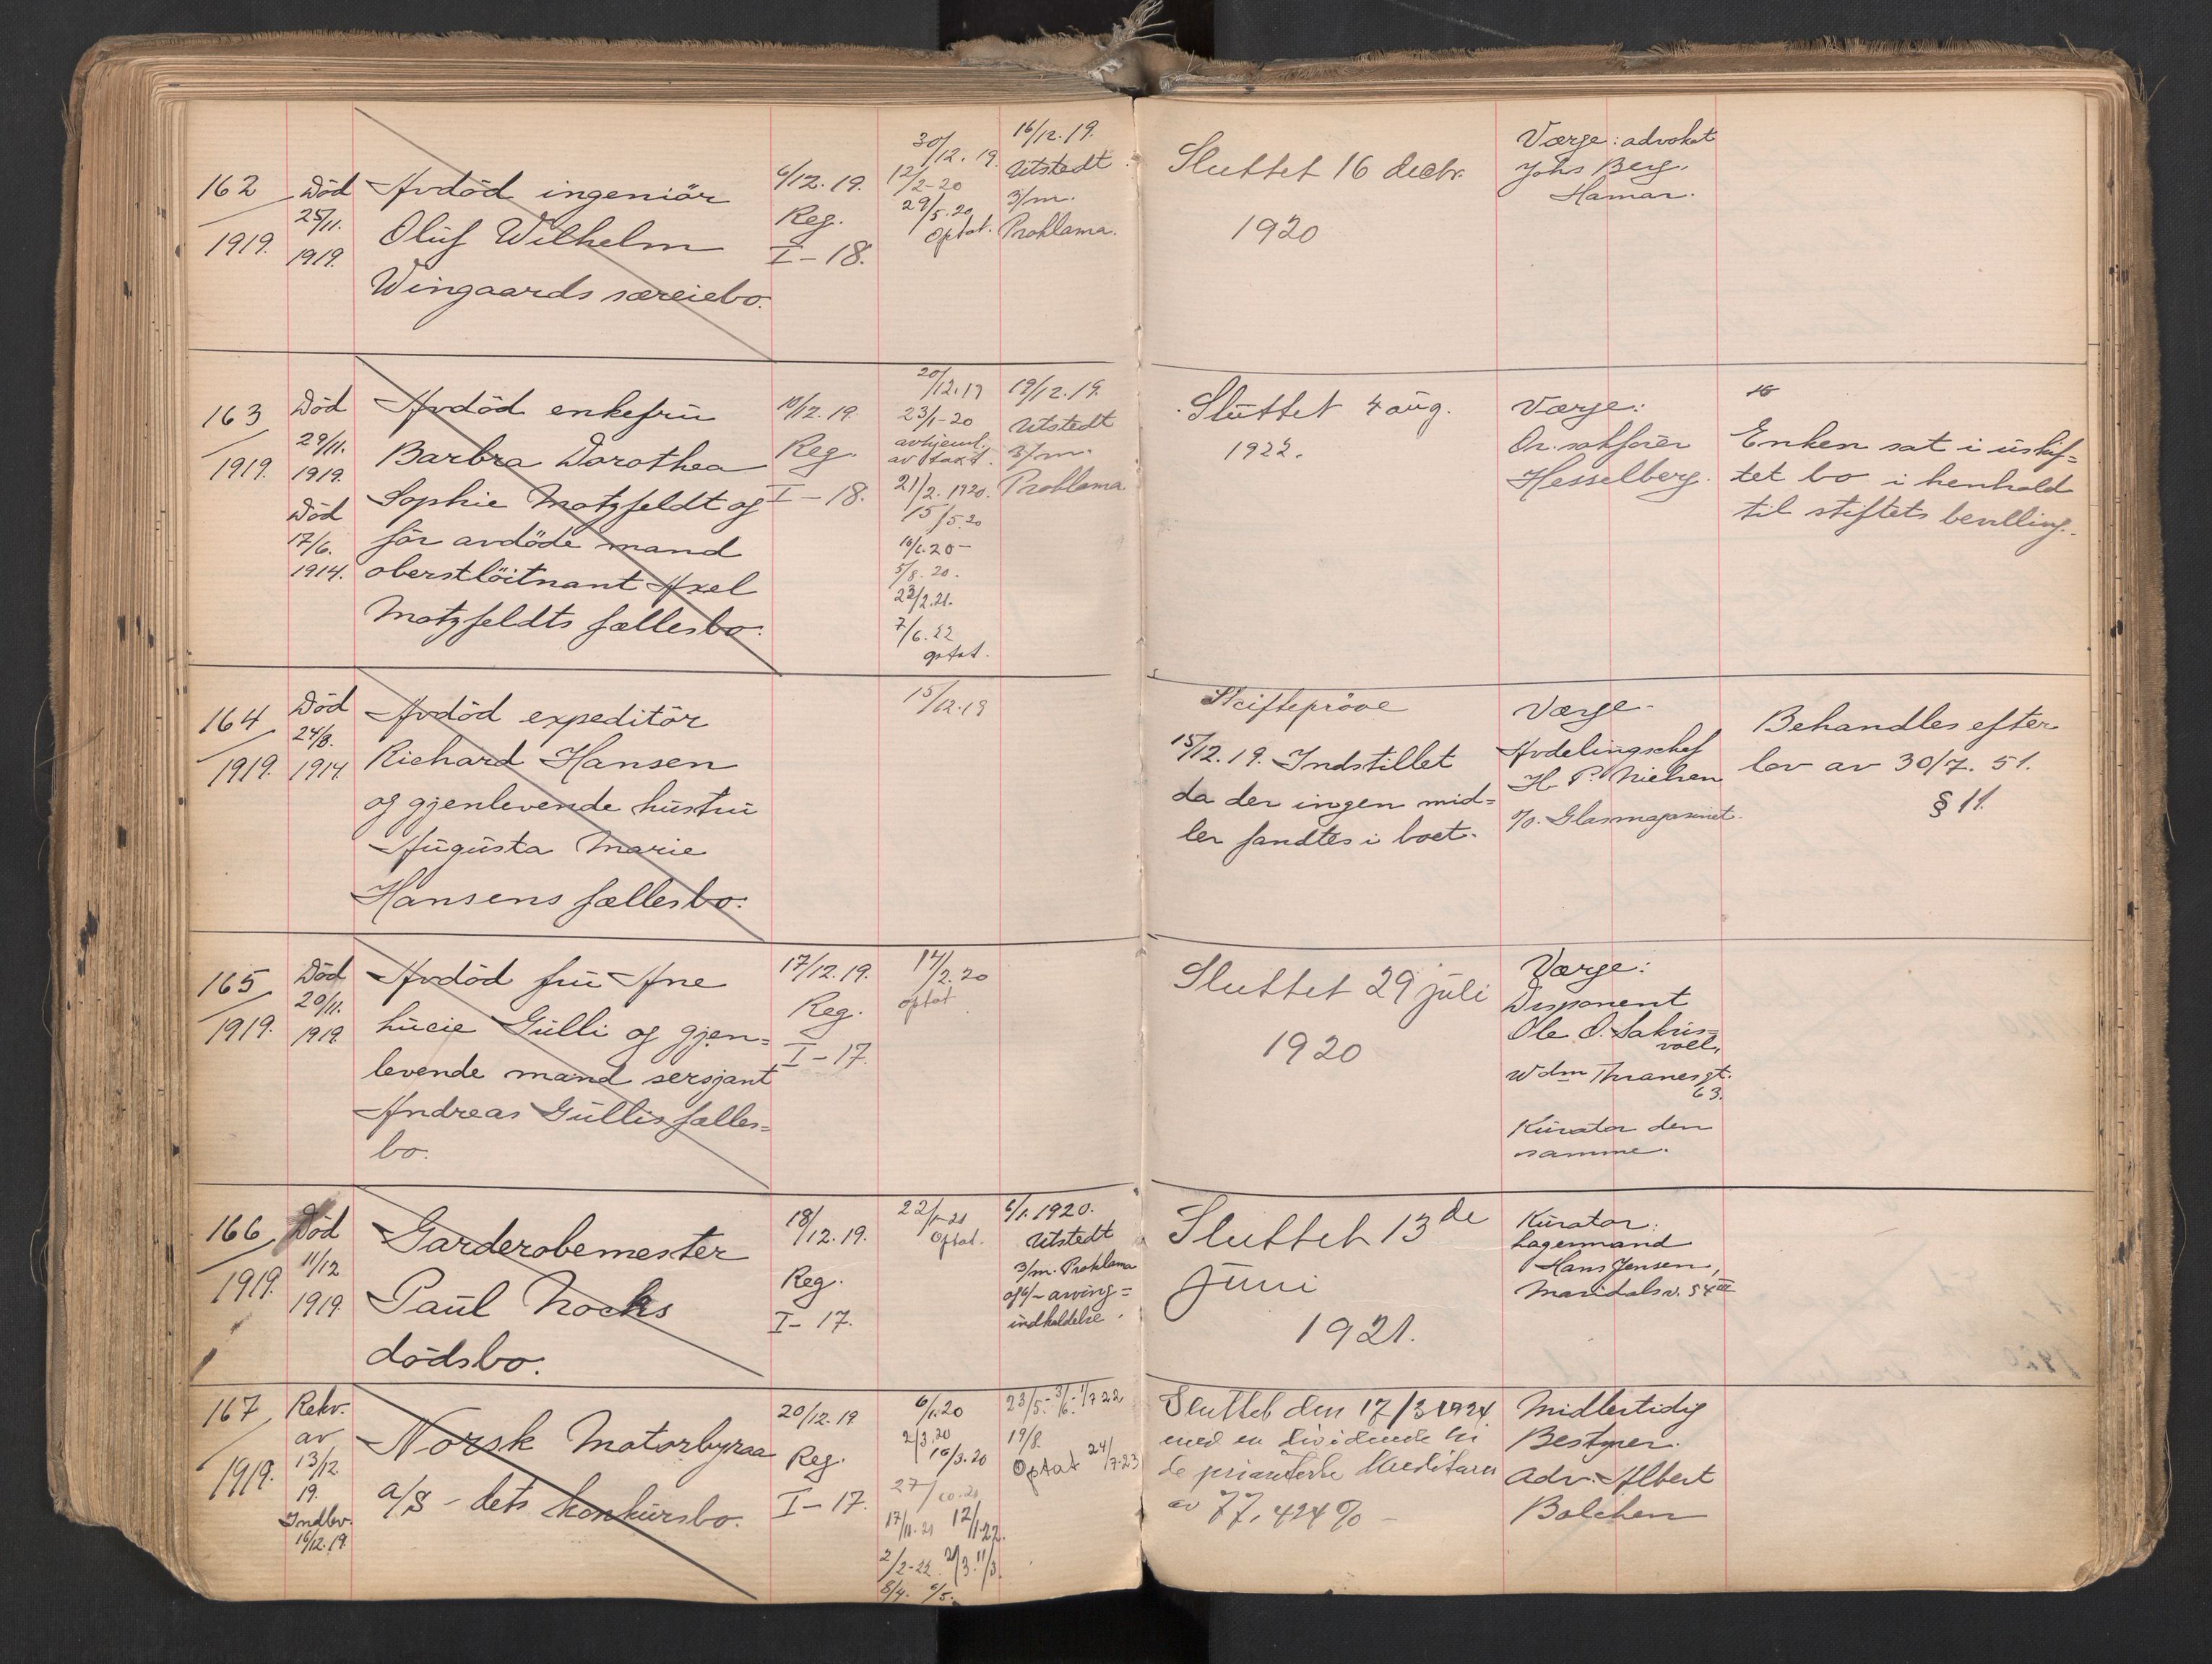 162
1919.
Död
25/11.
1919.
Avdöd ingeniör
Oluf Wilhelm
Wingaards særeiebo.
6/12. 19.
Reg.
I - 18.
30/12. 19.
12/2-20
29/5. 20
Optat.
16/12. 19.
Utstedt
3/m.
Proklama.
Sluttet 16 decbr.
1920
Værge: advokat
Johs Berg.
Hamar.
163
1919.
Död
29/11.
1919.
Död
17/6.
1914.
Avdöd enkefru
Barbra Dorothea
Sophie Motzfeldt og
för avdöde mand
oberstlöitnant Axel
Motzfeldts fællesbo.
10/12. 19.
Reg.
I - 18.
20/12. 19
23/1-20
avhjeml.
av takst.
21/2. 1920.
15/5. 20
16/6. 20 -
5/8. 20.
22/2. 21.
7/6. 22
optat.
19/12. 19.
Utstedt
3/m.
Proklama
Sluttet 4 aug.
1922.
Værge:
Or. sakförer
Hesselberg.
Enken sat i uskif=
tet bo i henhold
til stiftets bevilling.
164
1919.
Död
24/8.
1914.
Avdöd expeditör
Richard Hansen
og gjenlevende hustru
Augusta Marie
Hansens fællesbo.
15/12. 19
Skiftepröve
15/12. 19. Indstillet
da der ingen mid=
ler fandtes i boet.
Værge
Avdelingschef
H. P. Nielsen
c/o. Glasmagasinet.
Behandles efter
lov av 30/7. 51.
§ 11.
165
1919.
Död
20/11.
1919.
Avdöd fru Ane
Lucie Gulli og gjen=
levende mand sersjant
Andreas Gullis fælles=
bo.
17/12. 19.
Reg.
I - 17.
14/2. 20
optat
Sluttet 29 juli
1920
Værge:
Disponent
Ole O. Sakris=
voll,
Wdm Thranes gt.
63.
Kurator den
samme.
166
1919.
Död
11/12
1919.
Garderobemester
Paul Nocks
dödsbo.
18/12. 19.
Reg.
I - 17.
22/1-21
Optat.
6/1. 1920.
Utstedt
3/m. Proklama
og 6/- arving=
indkaldelse.
Sluttet 13de
juni
1921.
Kurator:
Lagermand
Hans Jensen,
Maridalsv. 54 III
167
1919.
Rekv.
av
13/12
19.
Indlev.
16/12. 19.
Norsk Motorbyraa
A/S - dets konkursbo.
20/12. 19
Reg.
I - 17.
6/1. 20
2/3. 20
16/3. 20
27/10. 20
17/11. 21 12/1. 22.
2/2-22. 2/3. 11/3.
8/4. 6/5.
23/5. - 3/6. - 1/7 22
19/8.
Optat 24/7. 23
Sluttet den 17/3 1924
med en dividende til
de prioriterte kreditorer
av 77,424 % -
Midlertidig
Bestyrer.
Adv. Albert
Balchen